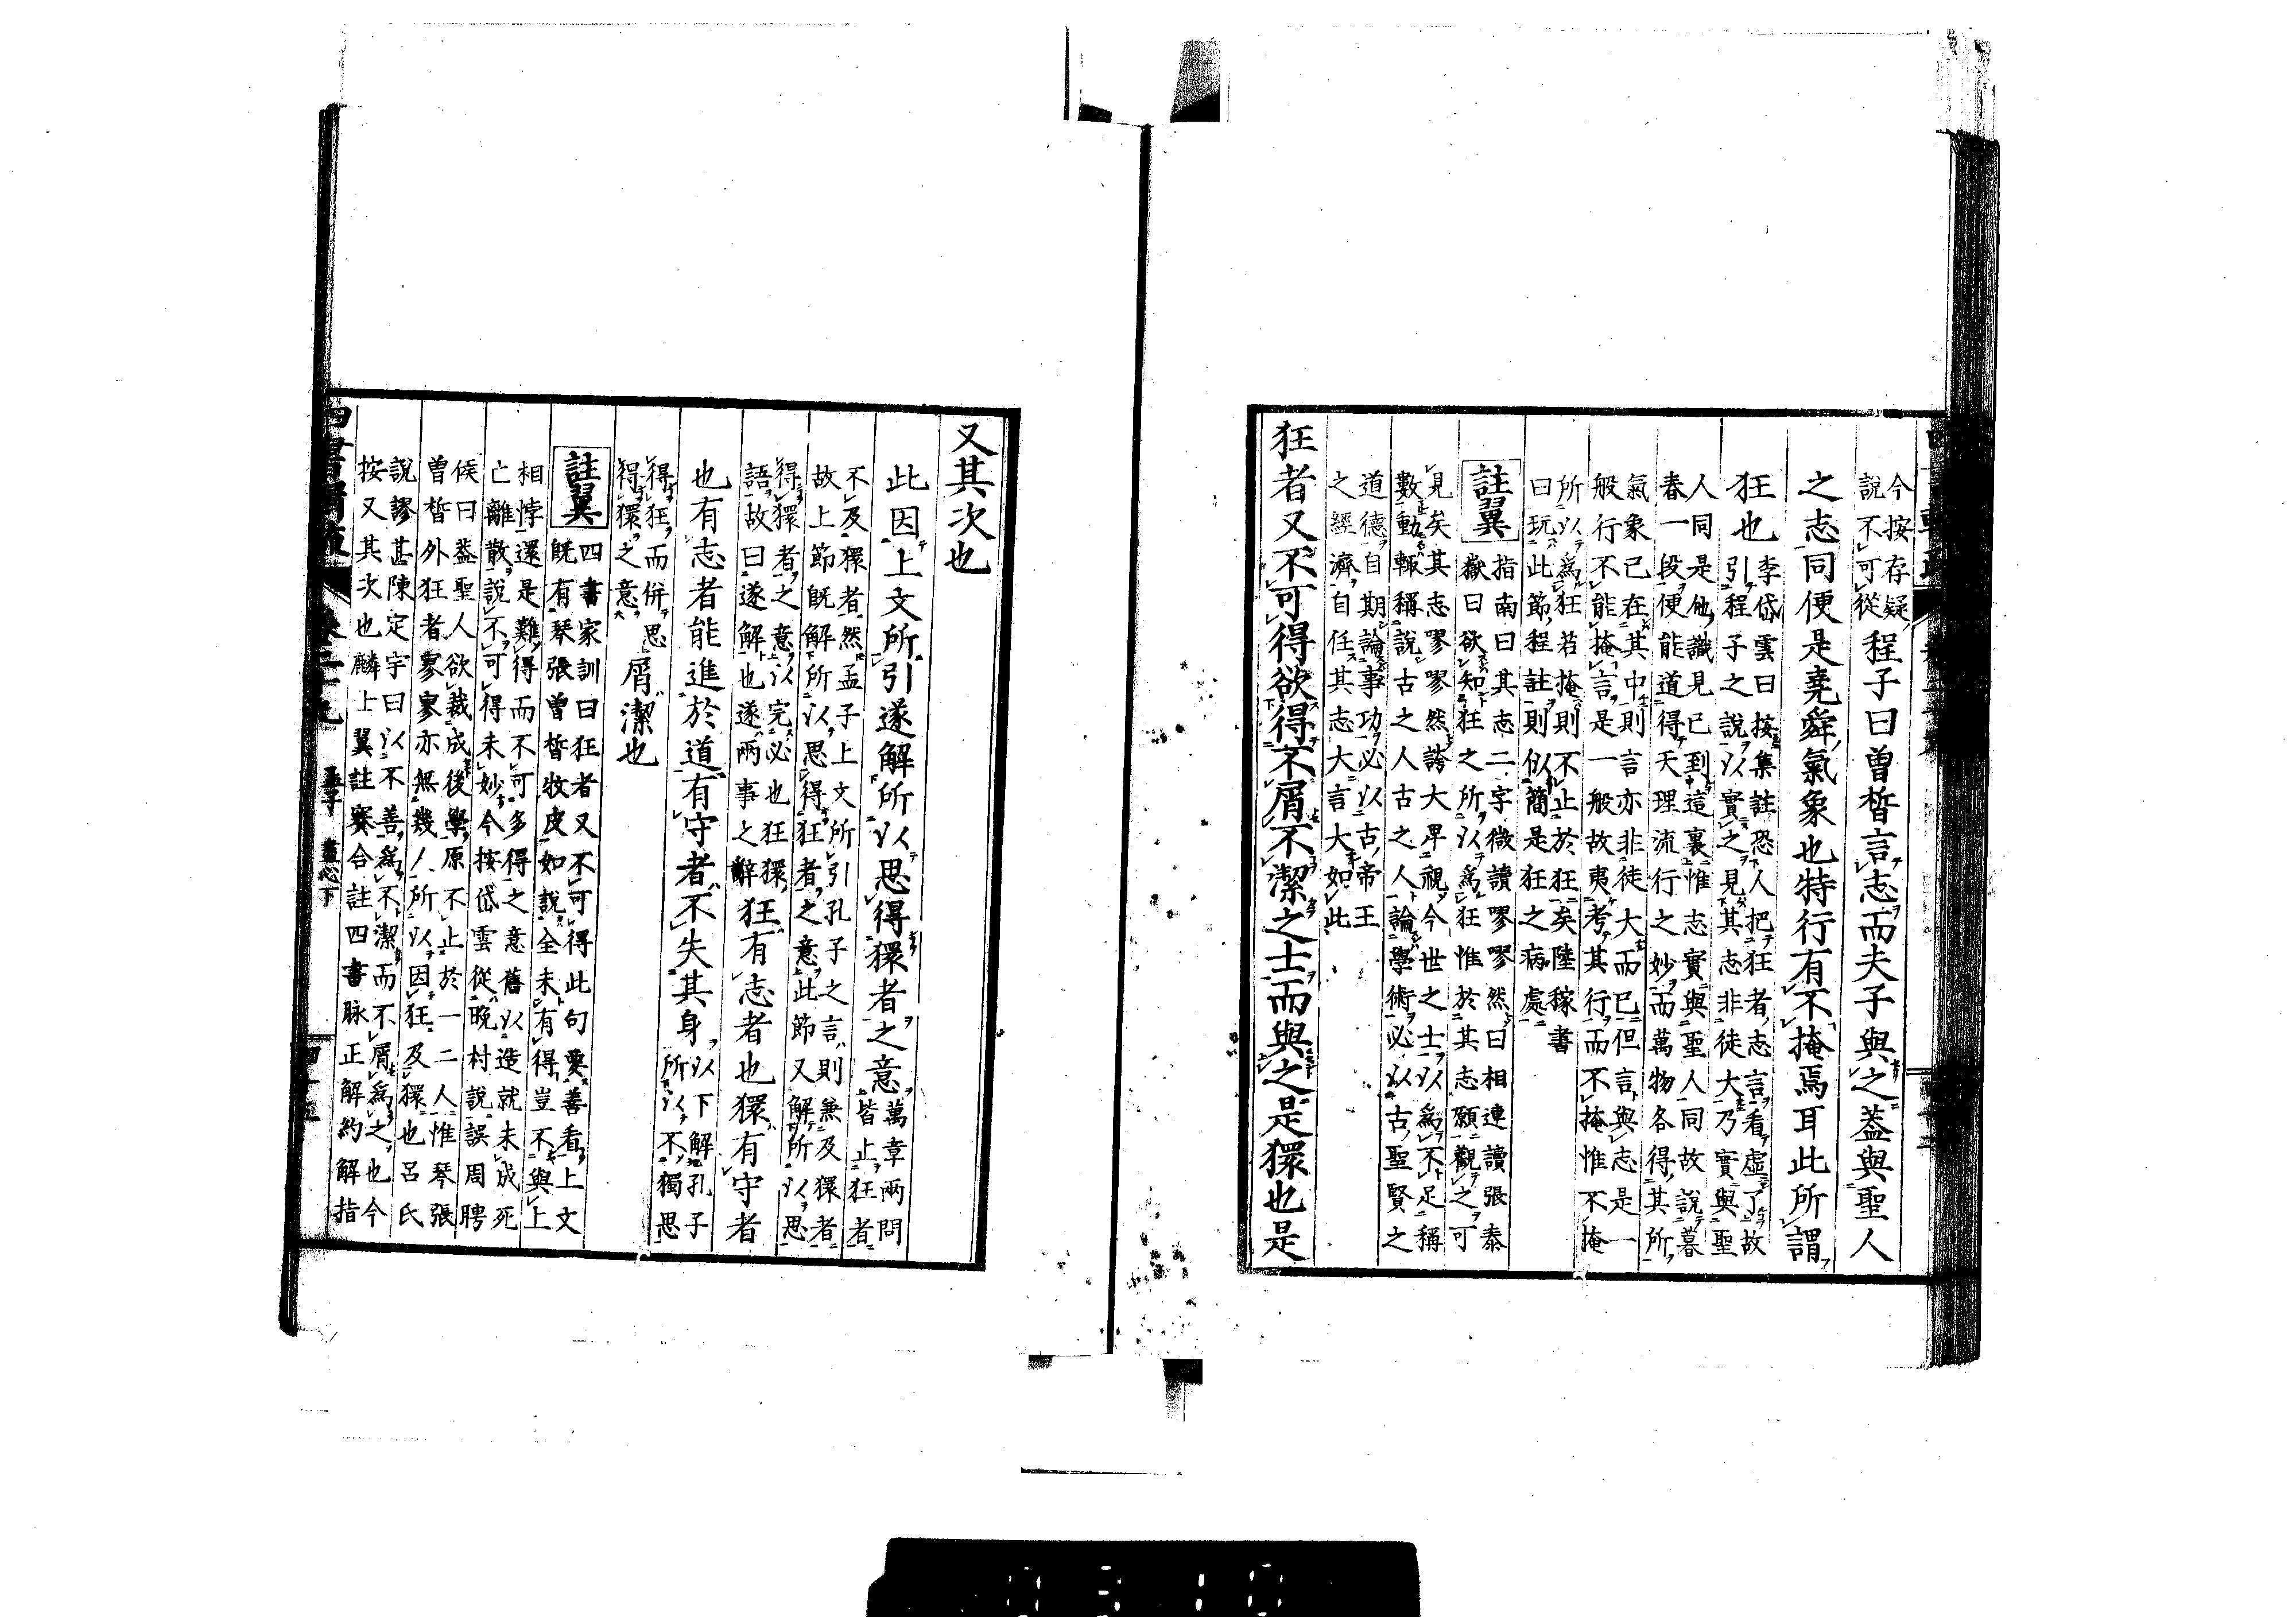 今按存疑
說不可從
程子曰曾皙言志而夫子與之蓋與聖人
之志同便是堯舜氣象也特行有不掩焉耳此所謂
狂也
李岱雲曰按集註恐人把狂者志言看虛了故
引程子之說以實之見其志非徒大乃實與聖
人同是他識見已到這裏惟志實與聖人同故說暮
春一段便能道得天理流行之妙而萬物各得其所
氣象已在其中則言亦非徒大而已但言與志是一
般行不能掩言是一般故夷考其行而不掩惟不掩
所以爲狂若掩則不止於狂矣陸稼書
曰玩此節程註則似簡是狂之病處
註翼
指南曰其志二字微讀嘐嘐然曰相連讀張泰
嶽曰欲知狂之所以爲狂惟於其志願觀之可
見矣其志嘐嘐然誇大卑視今世之士以爲不足稱
數動輒稱說古之人古之人論學術必以古聖賢之
道德自期論事功必以古帝王
之經濟自任其志大言大如此
狂者又不可得欲得不屑不潔之士而與之是獧也是
又其次也
此因上文所引遂解所以思得獧者之意
萬章兩問
皆止狂者
不及獧者然孟子上文所引孔子之言則兼及獧者
故上節既解所以思得狂者之意此節又解所以思
得獧者之意以完必也狂獧
語故曰遂解也遂兩事之辭
狂有志者也獧有守者
也有志者能進於道有守者不失其身
以下解孔子
所以不獨思
得狂而併思
得獧之意
屑潔也
註翼
四書家訓曰狂者又不可得此句要善看上文
既有琴張曾皙牧皮如說全未有得豈不與上
相悖還是難得而不可多得之意舊以造就未成死
亡離散說不可得未妙今按岱雲從晚村說誤周聘
侯曰蓋聖人欲裁成後學原不止於一二人惟琴張
曾皙外狂者寥寥亦無幾人所以因狂及獧也呂氏
說謬甚陳定宇曰以不善爲不潔而不屑爲之也今
按又其次也麟士翼註賽合註四書脉正解約解指